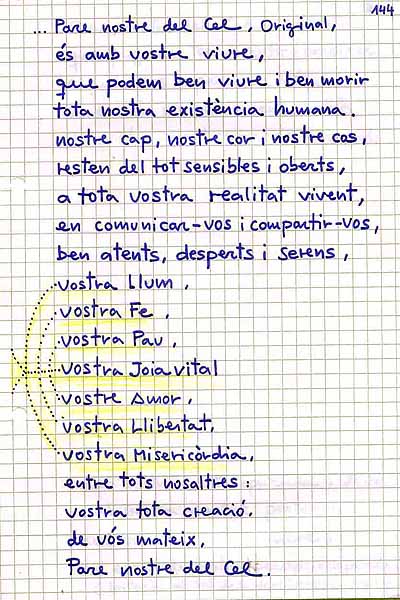 144
... Pare nostre del Cel, Original,
és amb vostre viure,
que podem ben viure i ben morir
tota nostra existència humana.
nostre cap, nostre cor i nostre cos,
resten del tot sensibles i oberts,
a tota vostra realitat vivent,
en comunicar-vos i compartir-vos,
ben atents, desperts i serens,
vostra Llum,
vostra Fe,
vostra Pau,
vostra Joia vital
vostre Amor,
vostra Llibertat,
vostra Misericòrdia,
entre tots nosaltres:
vostra tota creació,
de vós mateix,
Pare nostre del Cel.